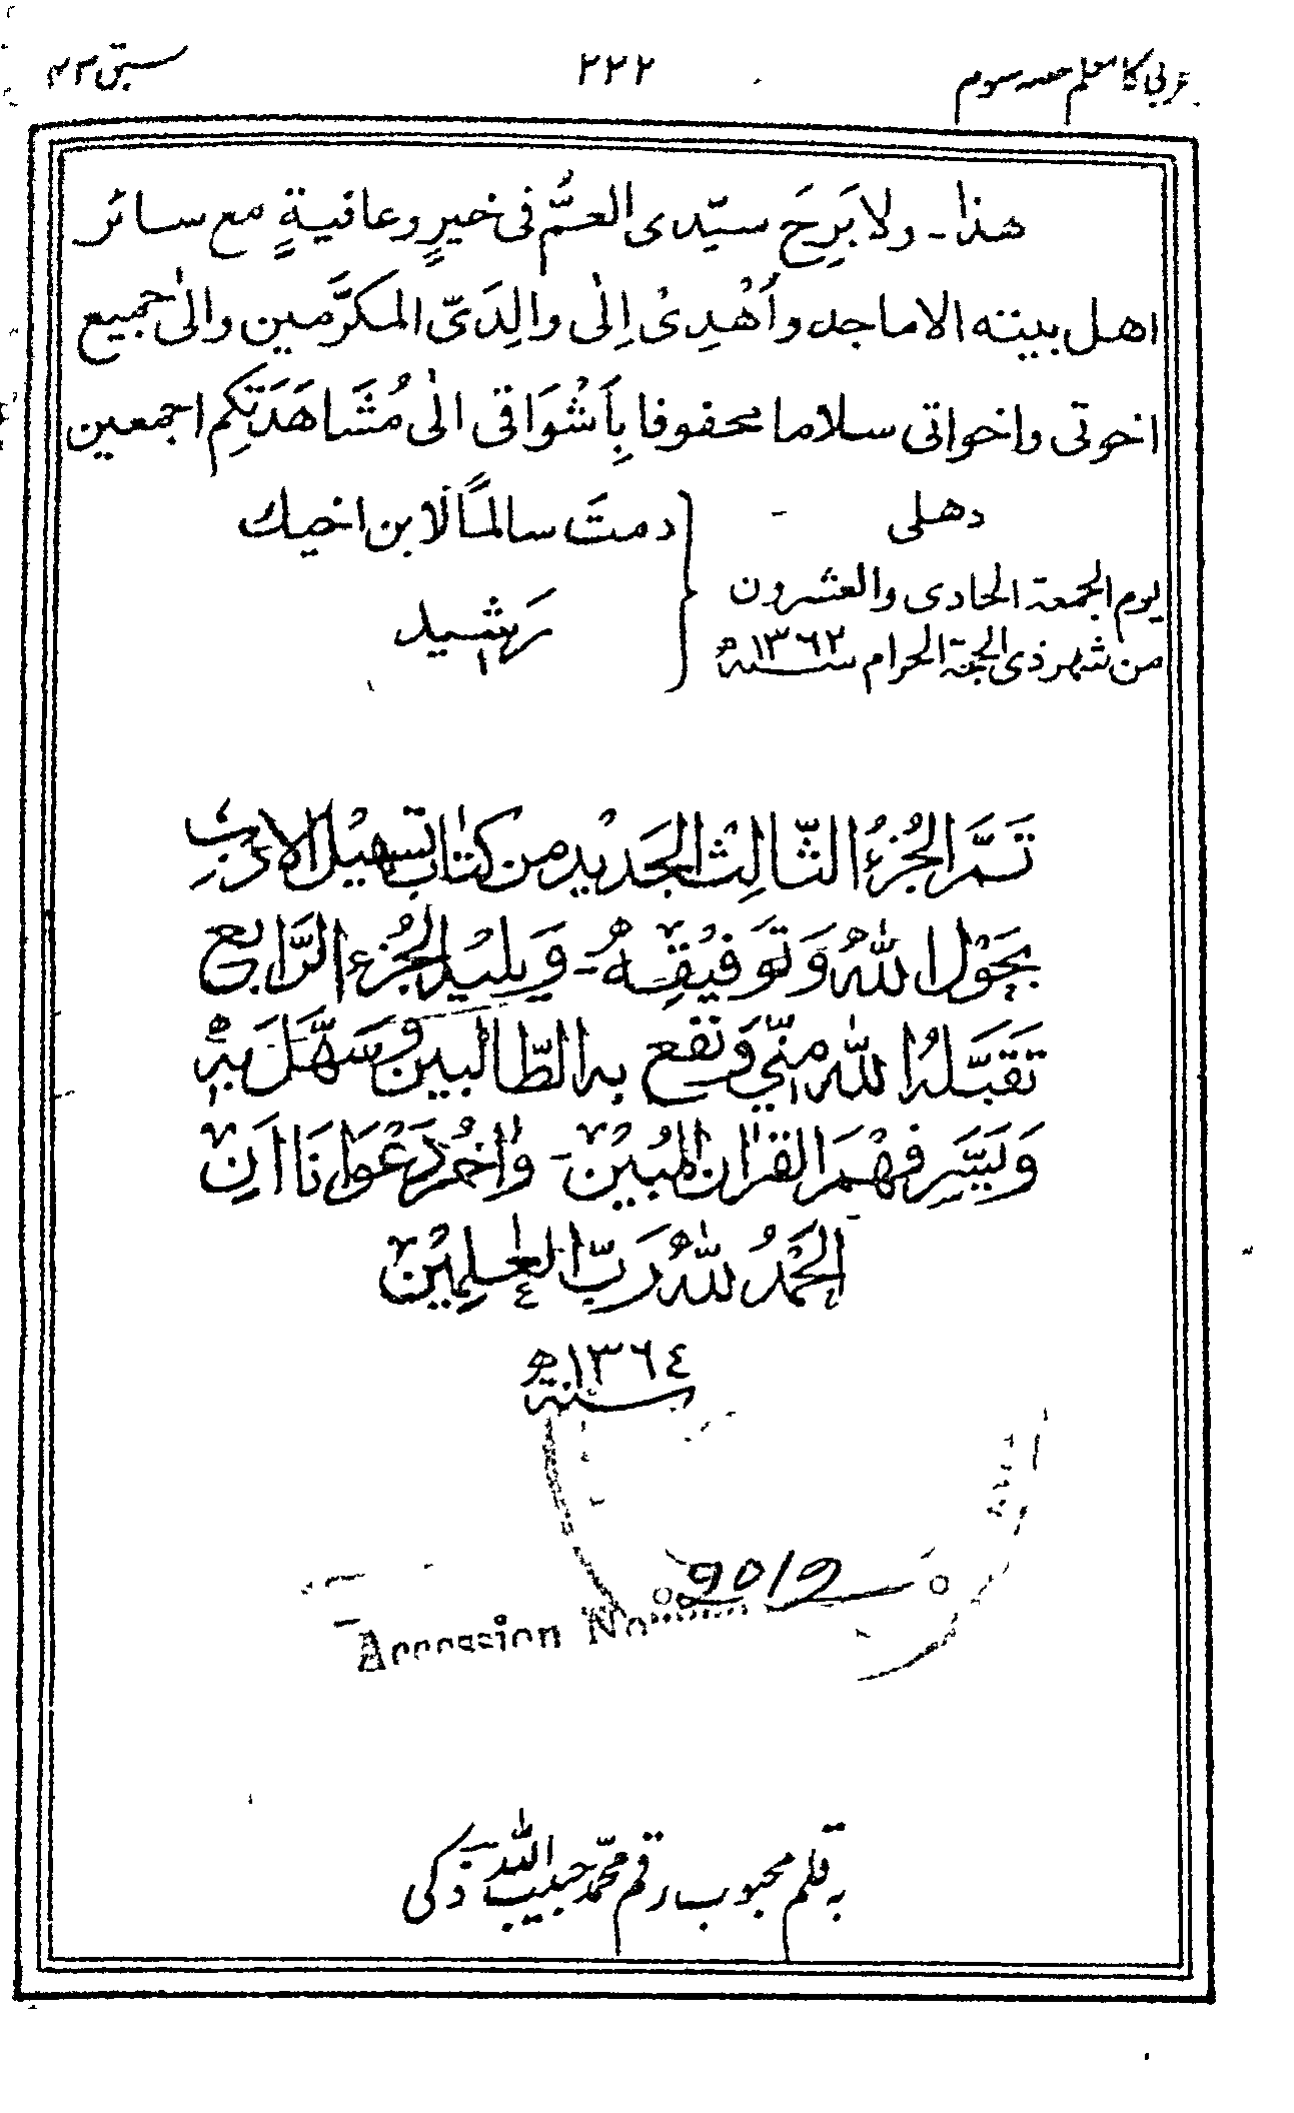 عربی کا معلم حصہ سوم
٢٢٢
سبق ٤٣
هذا۔ ولا بَرِحَ سيّدى العمُّ فى خيرٍ وعافيةٍ مع سائر
اهل بيته الاماجد وأُهْدِىْ اِلٰى والِدَىّ المكرَّمين والىٰ جميع
اخوتى واخواتى سلاما محفوفا بِأَشْوَاقى الىٰ مُشَاهَدَتِكِم اجمعين
دهلى
يوم الجمعة الحادى والعشرون
من شهر ذى الحجة الحرام سنه ١٣٦٢ھ
دمتَ سالمًا لابن اخيك
رشيد
تَمَّ الجُزءُ الثَّالِثُ الجَديْد من كتٰاب تسهيْل الادَبِ
بِحَوْلِ اللهِ وَتَوفيْقِهٖ۔ وَيليْهِ الجُزءُ الرَّابع
تَقَبَّلهُ الله منّي وَنفَع به الطَّالبين وسَهَّلَ بِهٖ
وَيَسَّر فهْمَ القرآن المُبيْن۔ وآخِرُ دَعْوَانَا اَنِ
الحَمْدُ للهِ رَبِّ العٰلمِيْن
سنة ١٣٦٤ھ
Accession No. 9012
به قلم محبوب رقم محمّد حبيب اللّٰه ذكى